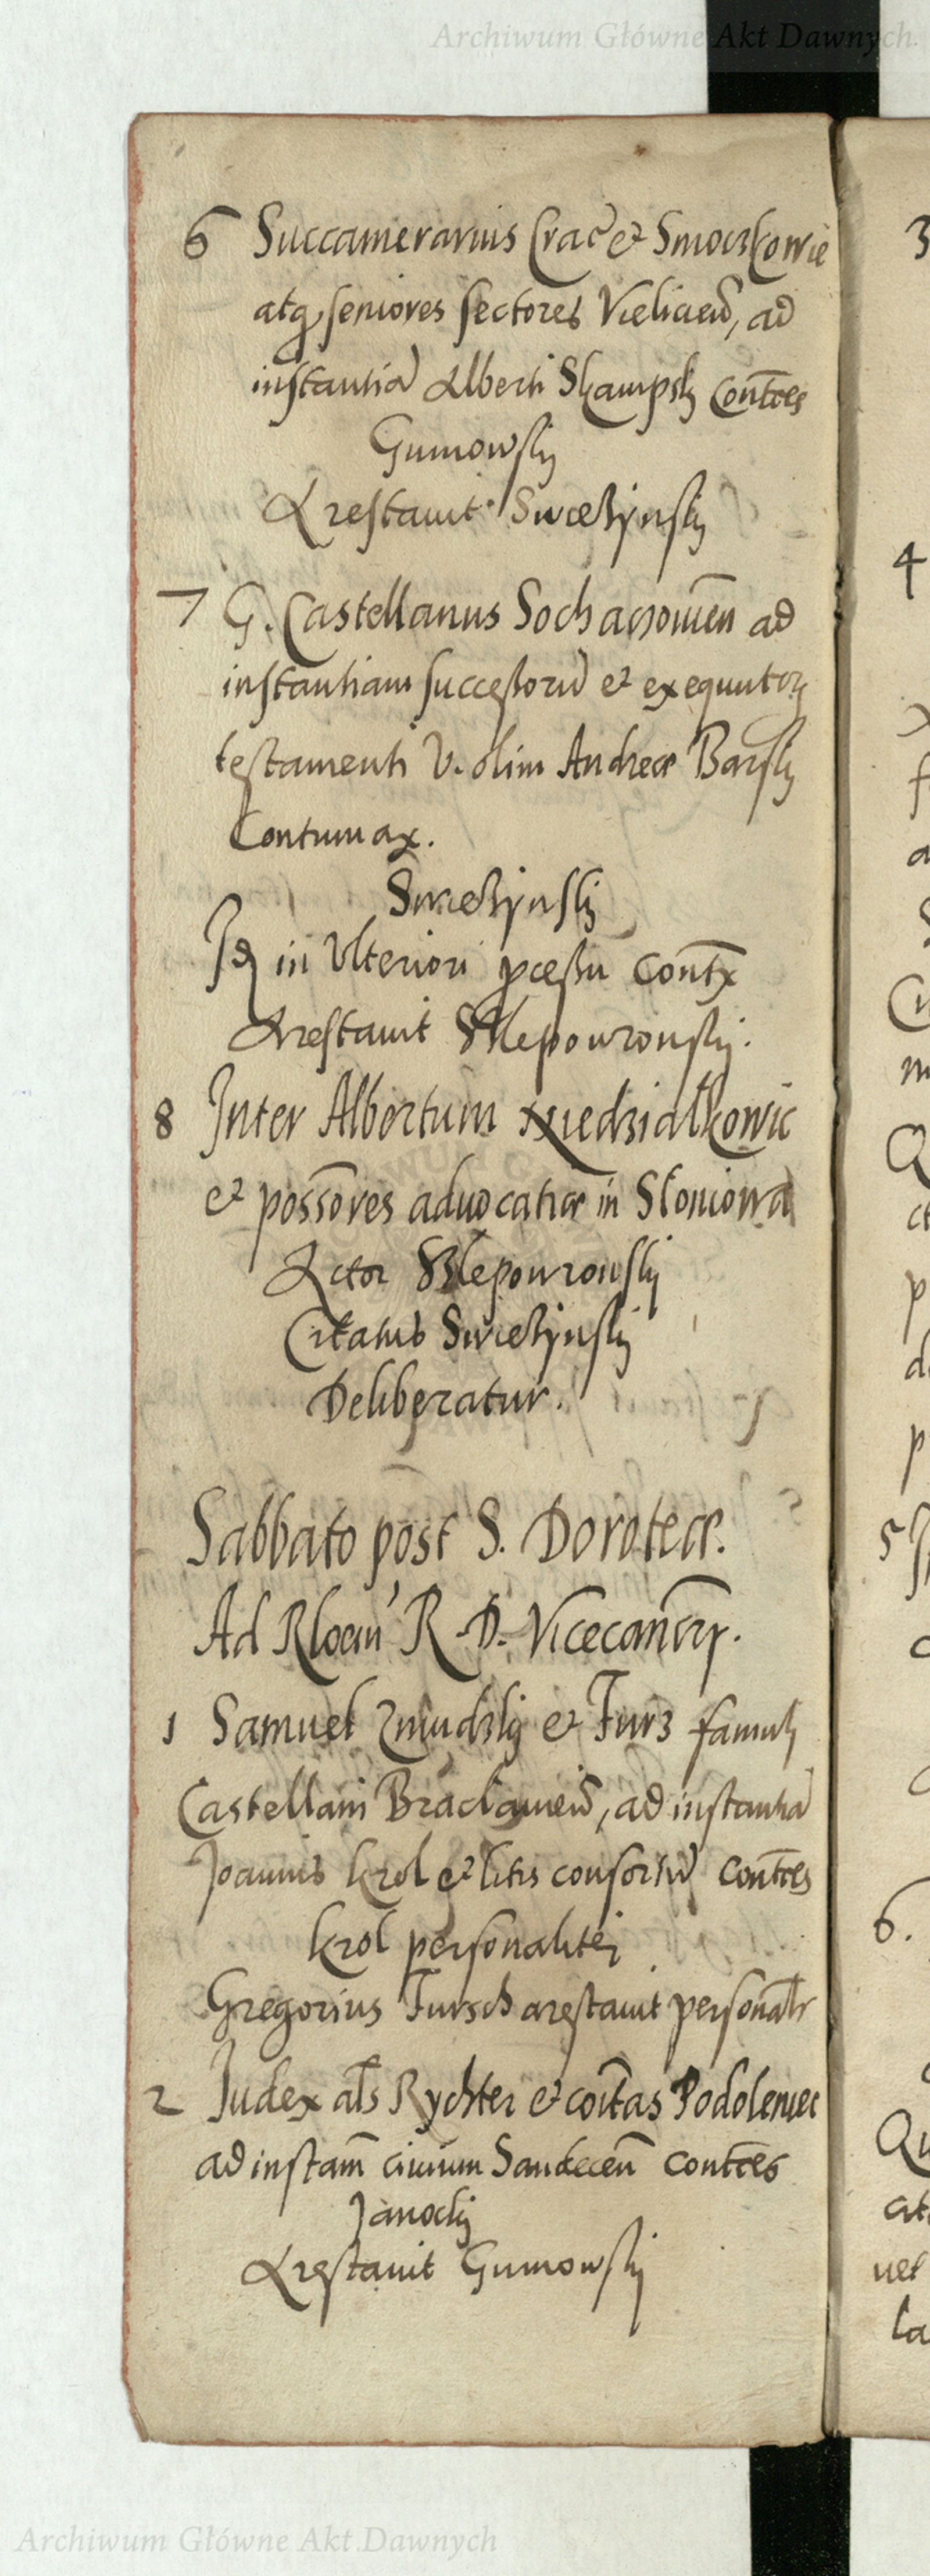 Archiwum Główne Akt Dawnych
6 Succamerarius Crac̄ et Smoczkowie
atq seniores sectores Vielicen̄, ad
instantiā Alberti Skampsky Contces
Gumowsky
Arestavit Swieżynsky
7 G. Castellanus Sochaczovien̄ ad
instantiam successorū et exequutor
testamenti V. olim Andreæ Barsky
Contumax.
Swieżynsky
Id in Ulteriori pcessu Contx
Arestavit Slepowronsky.
8 Inter Albertum Niedzialkowic
et possores advocatiæ in Sloniowa
Actor Slepowronsky
Citatus Swieżynsky
Deliberatur.
Sabbato post S. Doroteæ.
Ad Rloem R. D. Vicecancrj.
1 Samuel Zmudzky et Furz famuli
Castellani Braclavien̄, ad instantiā
Joannis Krol et litis consortiū contces
Krol personaliter
Gregorius Fursch arestavit personalr
2 Judex als Rychter et coītas Podoleniec
ad instam̄ civium Sandecen̄ contces
Janocky
Arestavit Gumowsky
3
4
5
6.
Archiwum Główne Akt Dawnych